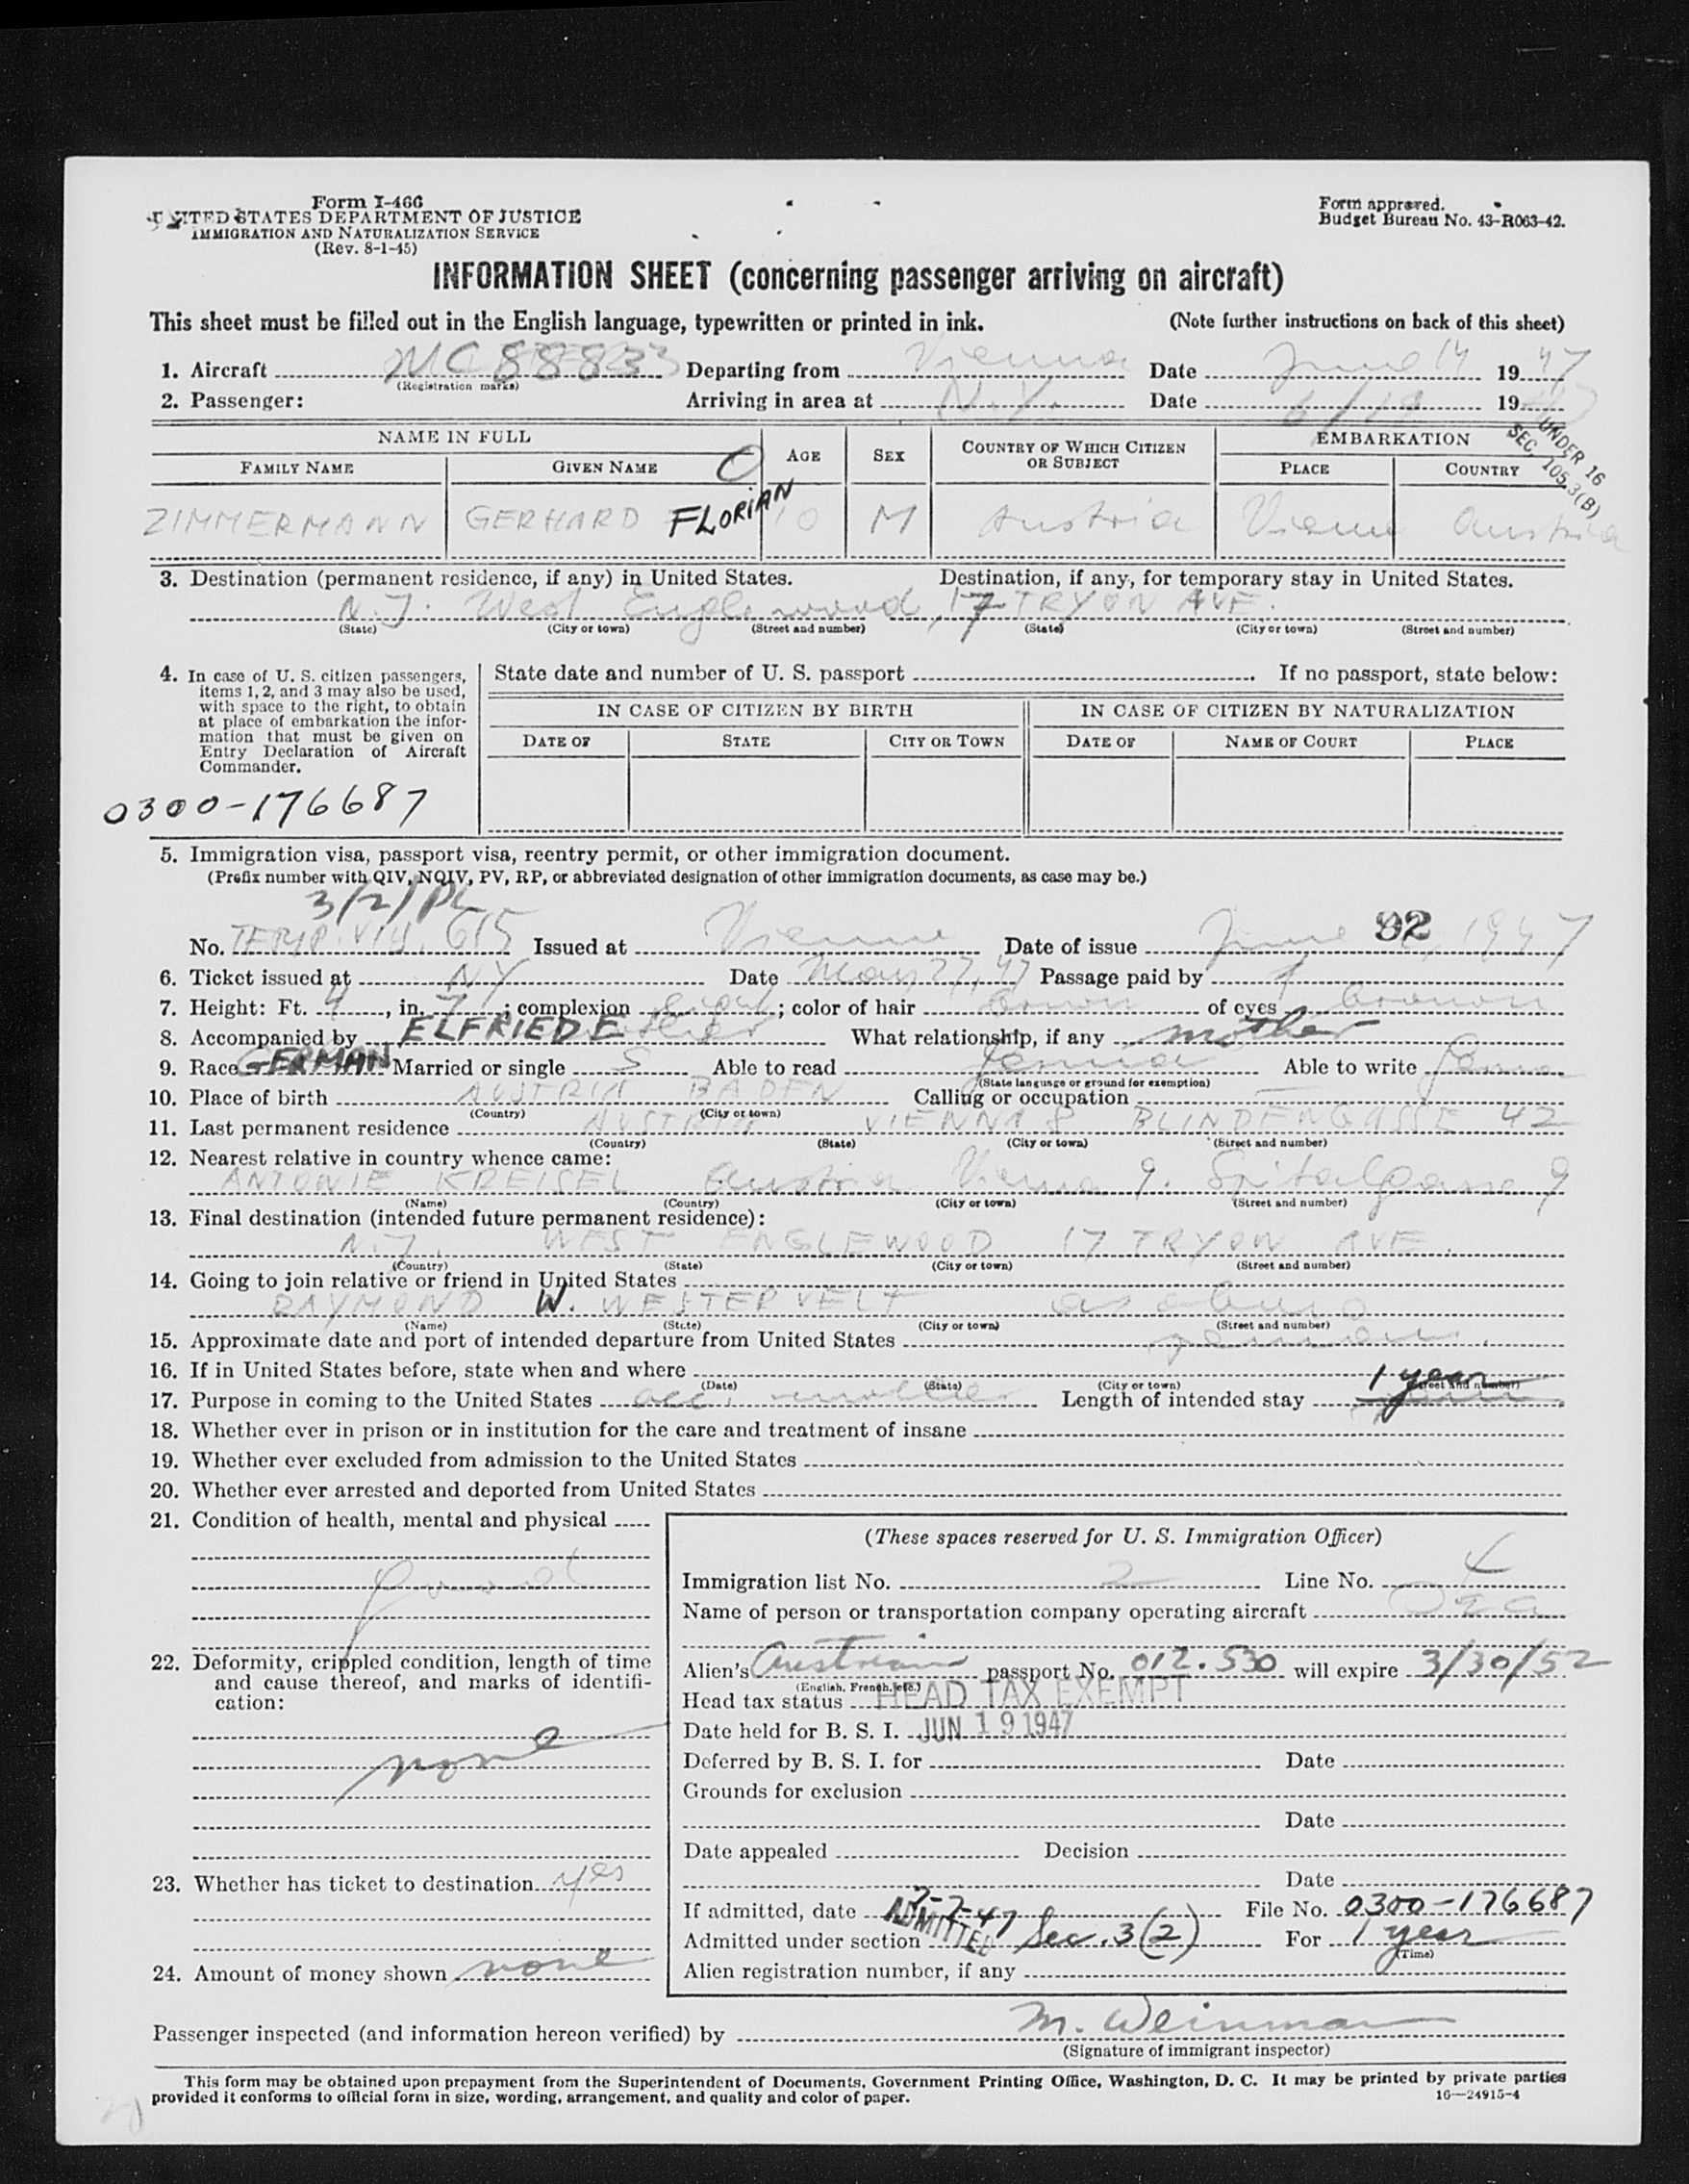 Form I-466
UNITED STATES DEPARTMENT OF JUSTICE
IMMIGRATION AND NATURALIZATION SERVICE
(Rev. 8-1-45)
Form approved.
Budget Bureau No. 43-R063-42.
INFORMATION SHEET (concerning passenger arriving on aircraft)
This sheet must be filled out in the English language, typewritten or printed in ink. (Note further instructions on back of this sheet)
1. Aircraft MC 88833 Departing from Vienna Date June 14 1947
(Registration marks)
2. Passenger: Arriving in area at N.Y. Date 6/19 1947
UNDER 16
SEC. 105.3(B)
NAME IN FULL AGE SEX COUNTRY OF WHICH CITIZEN OR SUBJECT EMBARKATION
FAMILY NAME GIVEN NAME PLACE COUNTRY
ZIMMERMANN GERHARD FLORIAN 10 M Austria Vienna Austria
3. Destination (permanent residence, if any) in United States. Destination, if any, for temporary stay in United States.
N.J. West Englewood, 17 TRYON AVE.
(State) (City or town) (Street and number) (State) (City or town) (Street and number)
4. In case of U. S. citizen passengers, items 1, 2, and 3 may also be used, with space to the right, to obtain at place of embarkation the information that must be given on Entry Declaration of Aircraft Commander.
State date and number of U. S. passport . If no passport, state below:
IN CASE OF CITIZEN BY BIRTH IN CASE OF CITIZEN BY NATURALIZATION
DATE OF STATE CITY OR TOWN DATE OF NAME OF COURT PLACE
0300-176687
5. Immigration visa, passport visa, reentry permit, or other immigration document.
(Prefix number with QIV, NQIV, PV, RP, or abbreviated designation of other immigration documents, as case may be.)
3/2/PL
No. TEMP. VIS. 615 Issued at Vienna Date of issue June 1947
6. Ticket issued at NY Date May 27, 47 Passage paid by
7. Height: Ft. 4, in. 7; complexion light; color of hair brown of eyes brown
8. Accompanied by ELFRIEDE What relationship, if any mother
9. Race GERMAN Married or single S Able to read German Able to write German
(State language or ground for exemption)
10. Place of birth AUSTRIA BADEN Calling or occupation —
(Country) (City or town)
11. Last permanent residence AUSTRIA VIENNA 8 BLINDENGASSE 42
(Country) (State) (City or town) (Street and number)
12. Nearest relative in country whence came:
ANTONIE KREISEL Austria Vienna 9. Spitalgasse 9
(Name) (Country) (City or town) (Street and number)
13. Final destination (intended future permanent residence):
N.J. WEST ENGLEWOOD 17 TRYON AVE.
(Country) (State) (City or town) (Street and number)
14. Going to join relative or friend in United States
RAYMOND W. WESTERVELT as above
(Name) (State) (City or town) (Street and number)
15. Approximate date and port of intended departure from United States
16. If in United States before, state when and where
(Date) (State) (City or town) (Street and number)
17. Purpose in coming to the United States acc. mother Length of intended stay 1 year
18. Whether ever in prison or in institution for the care and treatment of insane
19. Whether ever excluded from admission to the United States
20. Whether ever arrested and deported from United States
21. Condition of health, mental and physical
good
22. Deformity, crippled condition, length of time and cause thereof, and marks of identification:
none
23. Whether has ticket to destination yes
24. Amount of money shown none
(These spaces reserved for U. S. Immigration Officer)
Immigration list No. 2 Line No. 4
Name of person or transportation company operating aircraft
Alien's Austrian passport No. 012.530 will expire 3/30/52
(English, French, etc.)
Head tax status HEAD TAX EXEMPT
Date held for B. S. I. JUN 19 1947
Deferred by B. S. I. for Date
Grounds for exclusion
Date
Date appealed Decision
Date
If admitted, date 7-7-47 File No. 0300-176687
ADMITTED
Admitted under section Sec. 3(2) For 1 year
(Time)
Alien registration number, if any
Passenger inspected (and information hereon verified) by M. Weinman
(Signature of immigrant inspector)
This form may be obtained upon prepayment from the Superintendent of Documents, Government Printing Office, Washington, D. C. It may be printed by private parties
provided it conforms to official form in size, wording, arrangement, and quality and color of paper. 16—24915-4